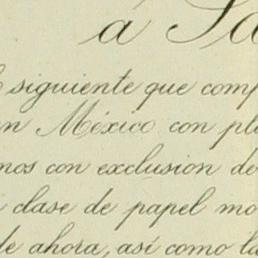 á
siguiente que comp
en México con pl
nos con exclusion de
clase de papel mo
de ahora, así como la